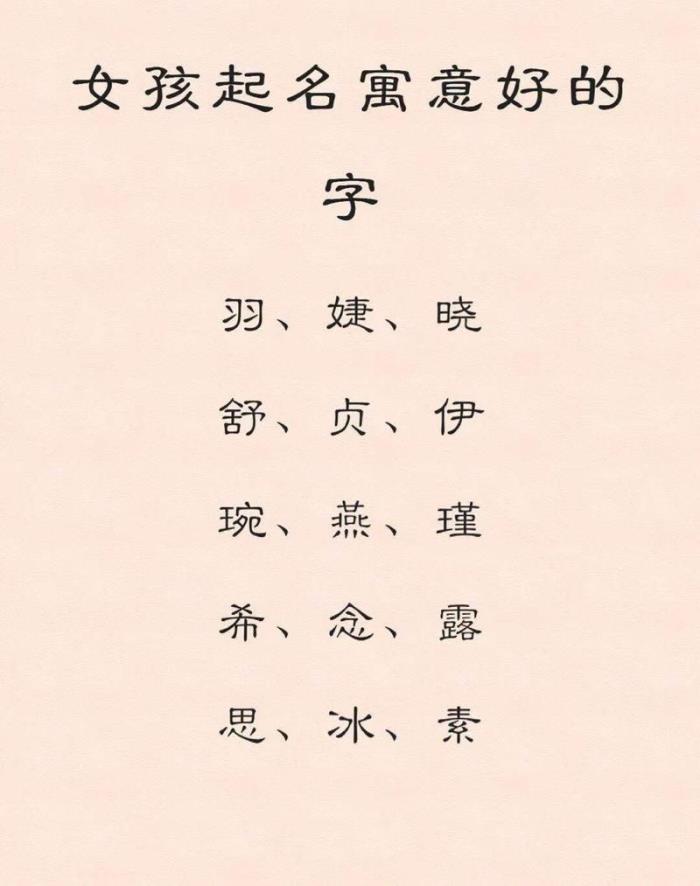 女孩起名寓意好的
字
羽、婕、晓
舒、贞、伊
琬、燕、瑾
希、念、露
思、冰、素